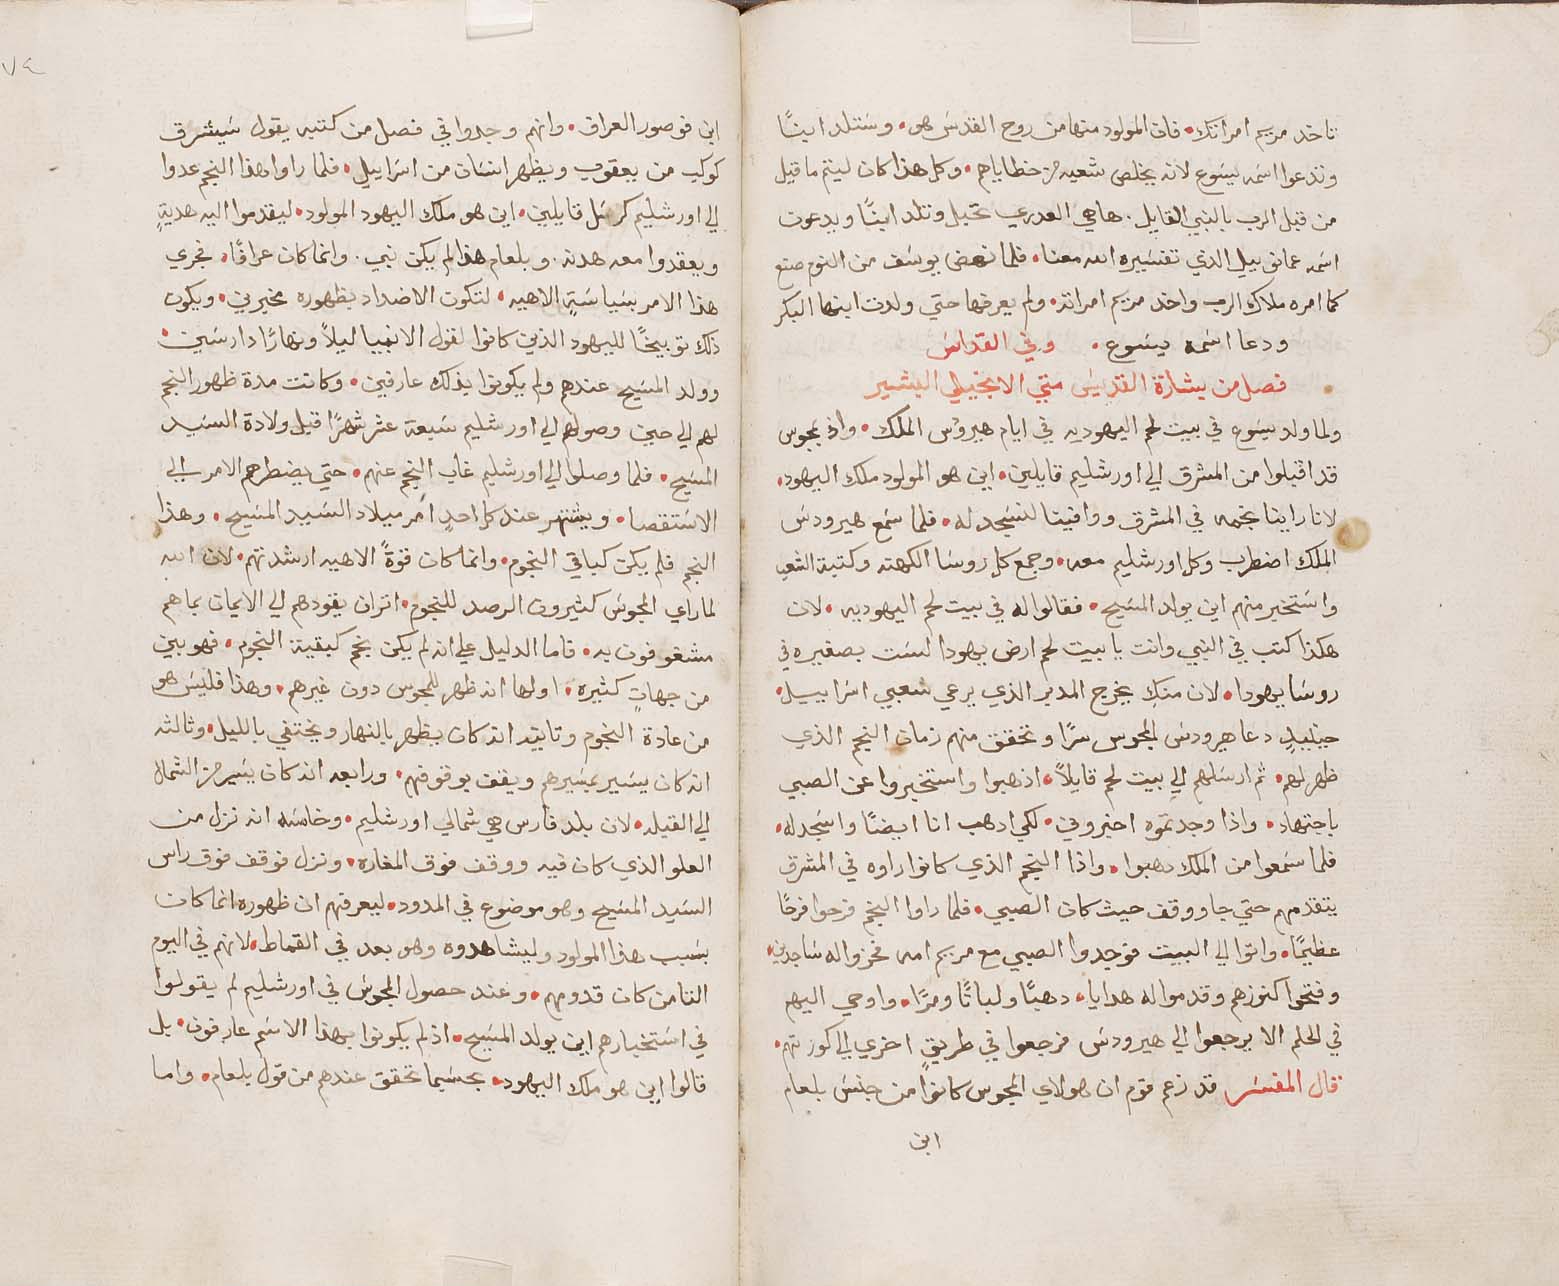 تاخد مريم امراتك • فان المولود منها من روح القدس هو • وستلد ابنًا
وتدعوا اسمه يسوع لانه يخلص شعبه من خطاياهم • وكل هذا كان ليتم ما قيل
من قبل الرب بالنبي القايل . هاهي العدري تحبل وتلد ابنًا ويدعون
اسمه عمانوييل الذي تفسيره الله معنا • فلما نهض يوسف من النوم صنع
كما امره ملاك الرب واخد مريم امراته • ولم يعرفها حتي ولدت ابنها البكر
ودعا اسمه يسوع • وفي القداس
فصل من بشارة القديس متي الانجيلي البشير
ولما ولد يسوع في بيت لحم اليهوديه في ايام هيرودس الملك • واذ مجوس
قد اقبلوا من المشرق الي اورشليم قايلين • اين هو المولود ملك اليهود •
لانا راينا نجمه في المشرق ووافينا لنسجد له • فلما سمع هيرودس
الملك اضطرب وكل اورشليم معه • وجمع كل روسا الكهنه وكتبة الشعب
واستخبر منهم اين يولد المسيح • فقالوا له في بيت لحم اليهوديه • لان
هكذا كتب في النبي وانت يا بيت لحم ارض يهودا لست بصغيره في
روسا يهودا • لان منك يخرج المدبر الذي يرعي شعبي اسراييل •
حينيدٍ دعا هيرودس المجوس سرًا وتحقق منهم زمان النجم الذي
ظهر لهم • ثم ارسلهم الي بيت لحم قايلاً • اذهبوا واستخبروا عن الصبي
باجتهاد • واذا وجدتموه اخبروني • لكي ادهب انا ايضًا واسجد له •
فلما سمعوا من الملك دهبوا • واذا النجم الذي كانوا راوه في المشرق
يتقدمهم حتي جا ووقف حيث كان الصبي • فلما راوا النجم فرحوا فرحًا
عظيمًا • واتوا الي البيت فوجدوا الصبي مع مريم امه فخروا له ساجدين •
وفتحوا كنوزهم وقدموا له هدايا • دهبًا ولبانًا ومرًا • واوحي اليهم
في الحلم الا يرجعوا الي هيرودس فرجعوا في طريقٍ اخري الي كورتهم •
قال المفسر قد زعم قوم ان هولاي المجوس كانوا من جنس بلعام
ابن
٧٤
ابن فوصور العراق • وانهم وجدوا في فصل من كتبه يقول سيشرق
كوكب من يعقوب ويظهر انسان من اسراييل • فلما راوا هذا النجم عدوا
الي اورشليم كرسل قايلين • اين هو ملك اليهود المولود • ليقدموا اليه هديةٍ
ويعقدوا معه هدنه . وبلعام هذا لم يكن نبي . وانما كان عرافًا • فجري
هذا الامر بسياسةٍ الاهيه • لتكون الاضداد بظهوره مخبرين • ويكون
ذلك توبيخًا لليهود الذين كانوا لقول الانبيا ليلاً ونهارًا دارسين •
وولد المسيح عندهم ولم يكونوا بذلك عارفين • وكانت مدة ظهور النجم
لهم الي حين وصولهم الي اورشليم سبعة عشر شهرًا قبل ولادة السيد
المسيح • فلما وصلوا الي اورشليم غاب النجم عنهم • حتي يضطرهم الامر الي
الاستقصا • ويشتهر عند كل احدٍ امر ميلاد السيد المسيح • وهذا
النجم فلم يكن كباقي النجوم • وانما كان قوةً الاهيه ارشدتهم • لان الله
لما راي المجوس كثيرون الرصد للنجوم • اثر ان يقودهم الي الايمان بما هم
مشغوفون به • فاما الدليل علي انه لم يكن نجم كبقية النجوم • فهو بين
من جهاتٍ كثيره • اولها انه ظهر للمجوس دون غيرهم • وهذا فليس هو
من عادة النجوم وثانيه انه كان يظهر بالنهار ويختفي بالليل • وثالثه
انه كان يسير بمسيرهم ويقف بوقوفهم • ورابعه انه كان يسير من الشمال
الي القبله • لان بلد فارس هي شمالي اورشليم • وخامسه انه نزل من
العلو الذي كان فيه ووقف فوق المغاره • ونزل فوقف فوق راس
السيد المسيح وهو موضوع في المدود • ليعرفهم ان ظهوره انما كان
بسبب هذا المولود وليشاهدوه وهو بعد في القماط • لانهم في اليوم
الثامن كان قدومهم • وعند حصول المجوس في اورشليم لم يقولوا
في استخبارهم اين يولد المسيح • اذ لم يكونوا بهذا الاسم عارفون • بل
قالوا اين هو ملك اليهود • بحسبما تحقق عندهم من قول بلعام • واما